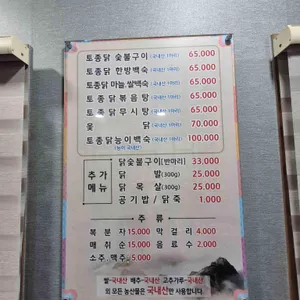 토종닭 숯불구이(국내산 1마리) 65,000
토종닭 한방백숙(국내산 1마리) 65,000
토종닭 마늘,쌀백숙(국내산 1마리) 65,000
토종닭볶음탕(국내산 1마리) 65,000
토종닭무시탕(국내산 1마리) 65,000
옻 닭 70,000
토종닭능이백숙(국내산 1마리) 100,000
(능이 국내산)
추가메뉴
닭숯불구이(반마리) 33,000
닭 발(300g) 25,000
닭 목 살(300g) 25,000
공기밥 / 닭죽 1,000
주 류
복 분 자 15,000 막 걸 리 4,000
매 취 순 15,000 음 료 수 2,000
소주.맥주 5,000
쌀-국내산 배추-국내산 고추가루-국내산
외 모든 농산물은 국내산만 사용합니다.